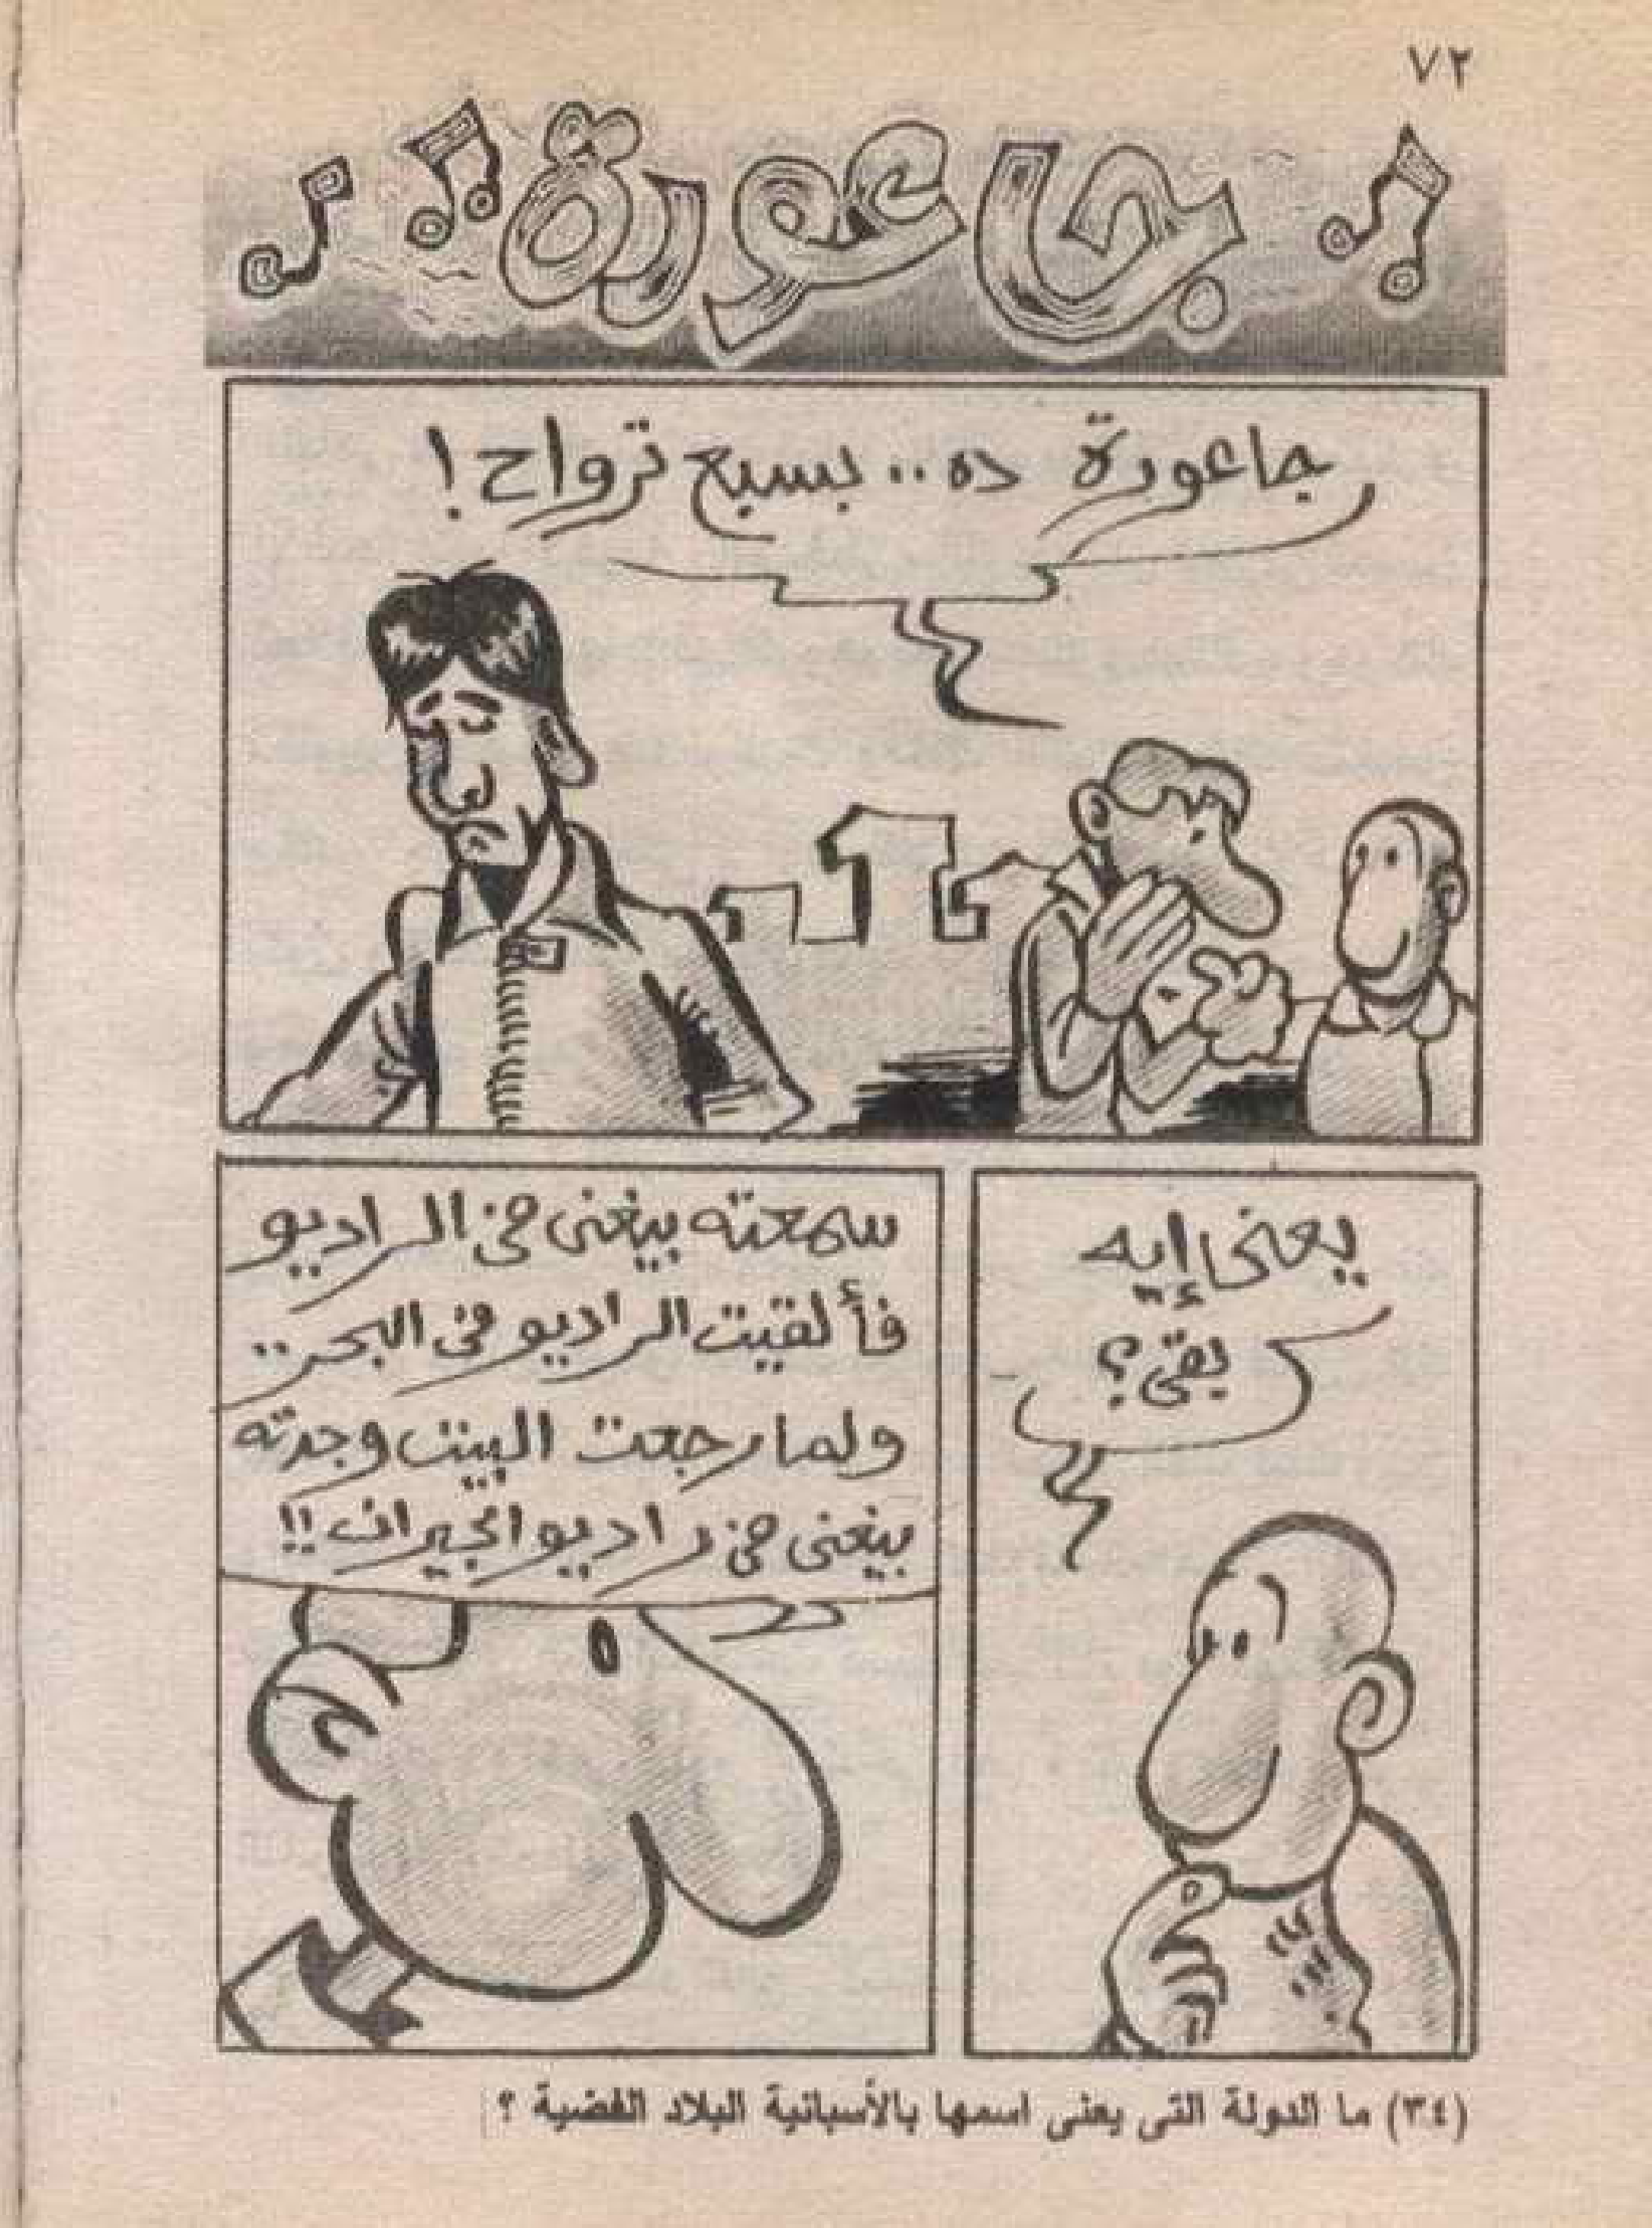 ٧٢
جاعورة
جاعورة ده.. بسبع ترواح!
يعنى إيه
بقى؟
سمعته بيغنى فى الراديو
فألقيت الراديو فى البحر..
ولما رجعت البيت وجدته
بيغنى فى راديو الجيران!!
(٣٤) ما الدولة التى يعنى اسمها بالأسبانية البلاد الفضية ؟